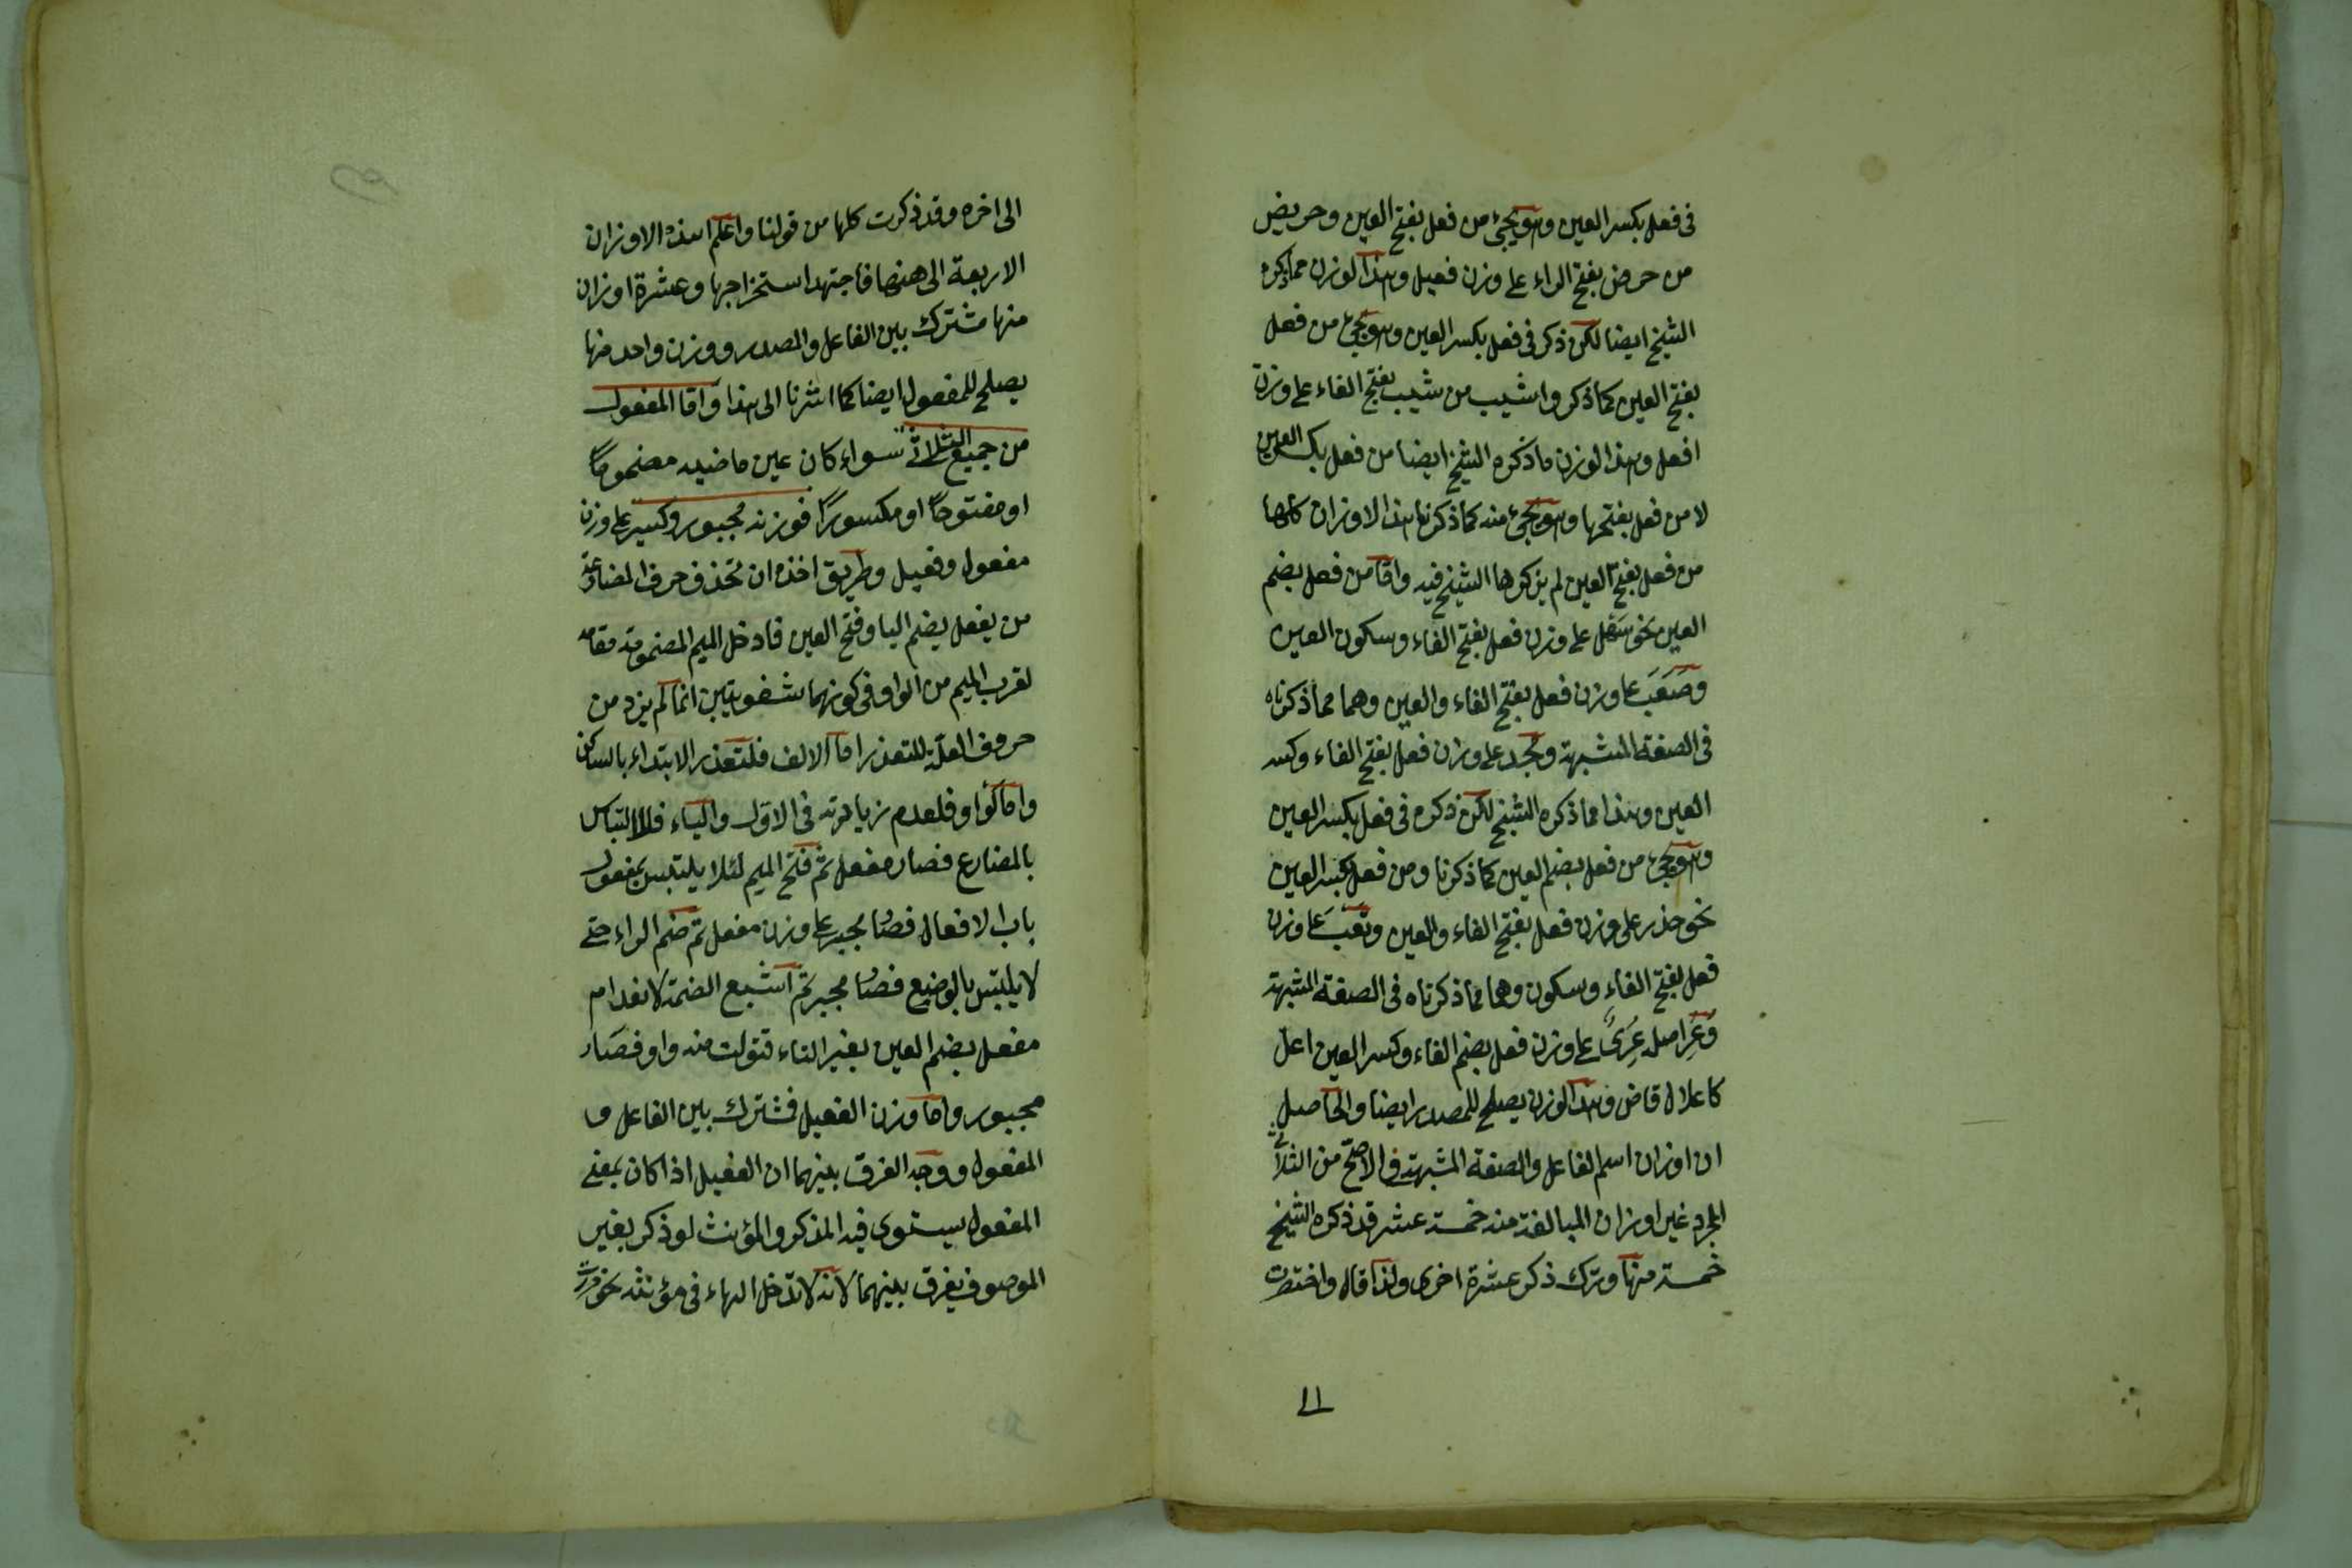 فى فعل بكسر العين وهو يجئ من فعل بفتح العين وحريض
من حرض بفتح الراء على وزن فعيل وهذا الوزن مما ذكره
الشيخ ايضا لكن ذكر فى فعل بكسر العين وهو يجئ من فعل
بفتح العين كما ذكر واشيب من شيب بفتح الفاء على وزن
افعل وهذا الوزن ما ذكره الشيخ ايضا من فعل بكسر العين
لا من فعل بفتحها وهو يجئ منه كما ذكرنا هذا الاوزان كلها
من فعل بفتح العين لم يذكرها الشيخ فيه واما من فعل بضم
العين نحو سهل على وزن فعل بفتح الفاء وسكون العين
وصعب على وزن فعل بفتح الفاء والعين وهما مما ذكرناه
فى الصفة المشبهة ونجد على وزن فعل بفتح الفاء وكسر
العين وهذا مما ذكره الشيخ لكن ذكره فى فعل بكسر العين
وهو يجئ من فعل بضم العين كما ذكرنا ومن فعل بكسر العين
نحو حذر على وزن فعل بفتح الفاء والعين وتعب على وزن
فعل بفتح الفاء وسكون وهما مما ذكرناه فى الصفة المشبهة
وعر اصله عرى على وزن فعل بضم الفاء وكسر العين اعل
كاعلال قاض وهذا الوزن يصلح للمصدر ايضا والحاصل
ان اوزان اسم الفاعل والصفة المشبهة فى الاصح من الثلاثى
المجرد غير اوزان المبالغة منه خمسة عشر قد ذكره الشيخ
خمسة منها وترك ذكر عشرة اخرى ولذا قال واختصرت
١١
الى اخره وقد ذكرت كلها من قولنا واعلم هذه الاوزان
الاربعة الى ههنا فاجتهد استخراجها وعشرة اوزان
منها مشترك بين الفاعل والمصدر ووزن واحد منها
يصلح للمفعول ايضا كما اشرنا الى هذا واما المفعول
من جميع الثلاثى سواء كان عين ماضيه مضموما
او مفتوحا او مكسورا فوزنه مجبور وكسير على وزن
مفعول وفعيل وطريق اخذه ان تحذف حرف المضارعة
من يفعل بضم اليا وفتح العين فادخل الميم المضمومة مقامه
لقرب الميم من الواو فى كونهما شفويتين انما لم يزد من
حروف العلة للتعذر اما الالف فلتعذر الابتداء بالساكن
واما الواو فلعدم زيادته فى الاول والياء فللالتباس
بالمضارع فصار مفعل ثم فتح الميم لئلا يلتبس بمفعول
باب الافعال فصار مجبر على وزن مفعل ثم ضم الراء حتى
لا يلتبس بالوضيع فصار مجبر ثم اشبع الضمة لانعدام
مفعل بضم العين بغير التاء فتولت منه واو فصار
مجبور واما وزن الفعيل فمشترك بين الفاعل و
المفعول ووجه الفرق بينهما ان الفعيل اذا كان بمعنى
المفعول يستوى فيه المذكر والمؤنث لو ذكر بغير
الموصوف يفرق بينهما لانه لا تدخل الهاء فى مؤنثه نحو مررت